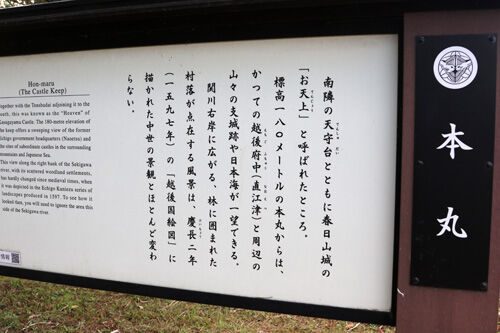 本丸
南隣の天守台とともに春日山城の
「お天上」と呼ばれたところ。
標高一八〇メートルの本丸からは、
かつての越後府中(直江津)と周辺の
山々の支城跡や日本海が一望できる。
関川右岸に広がる、林に囲まれた
村落が点在する風景は、慶長二年
(一五九七年)の「越後国絵図」に
描かれた中世の景観とほとんど変わ
らない。
Hon-maru
(The Castle Keep)
Together with the Tenshudai adjoining it to the
south, this was known as the "Heaven" of
Kasugayama Castle. The 180-metre elevation of
the keep offers a sweeping view of the former
Echigo government headquarters (Naoetsu) and
the sites of subordinate castles in the surrounding
mountains and Japanese Sea.
This view along the right bank of the Sekigawa
river, with its scattered woodland settlements,
has hardly changed since medieval times, when
it was depicted in the Echigo Kuniezu series of
landscapes produced in 1597. To see how it
looked then, you will need to ignore the area this
side of the Sekigawa river.